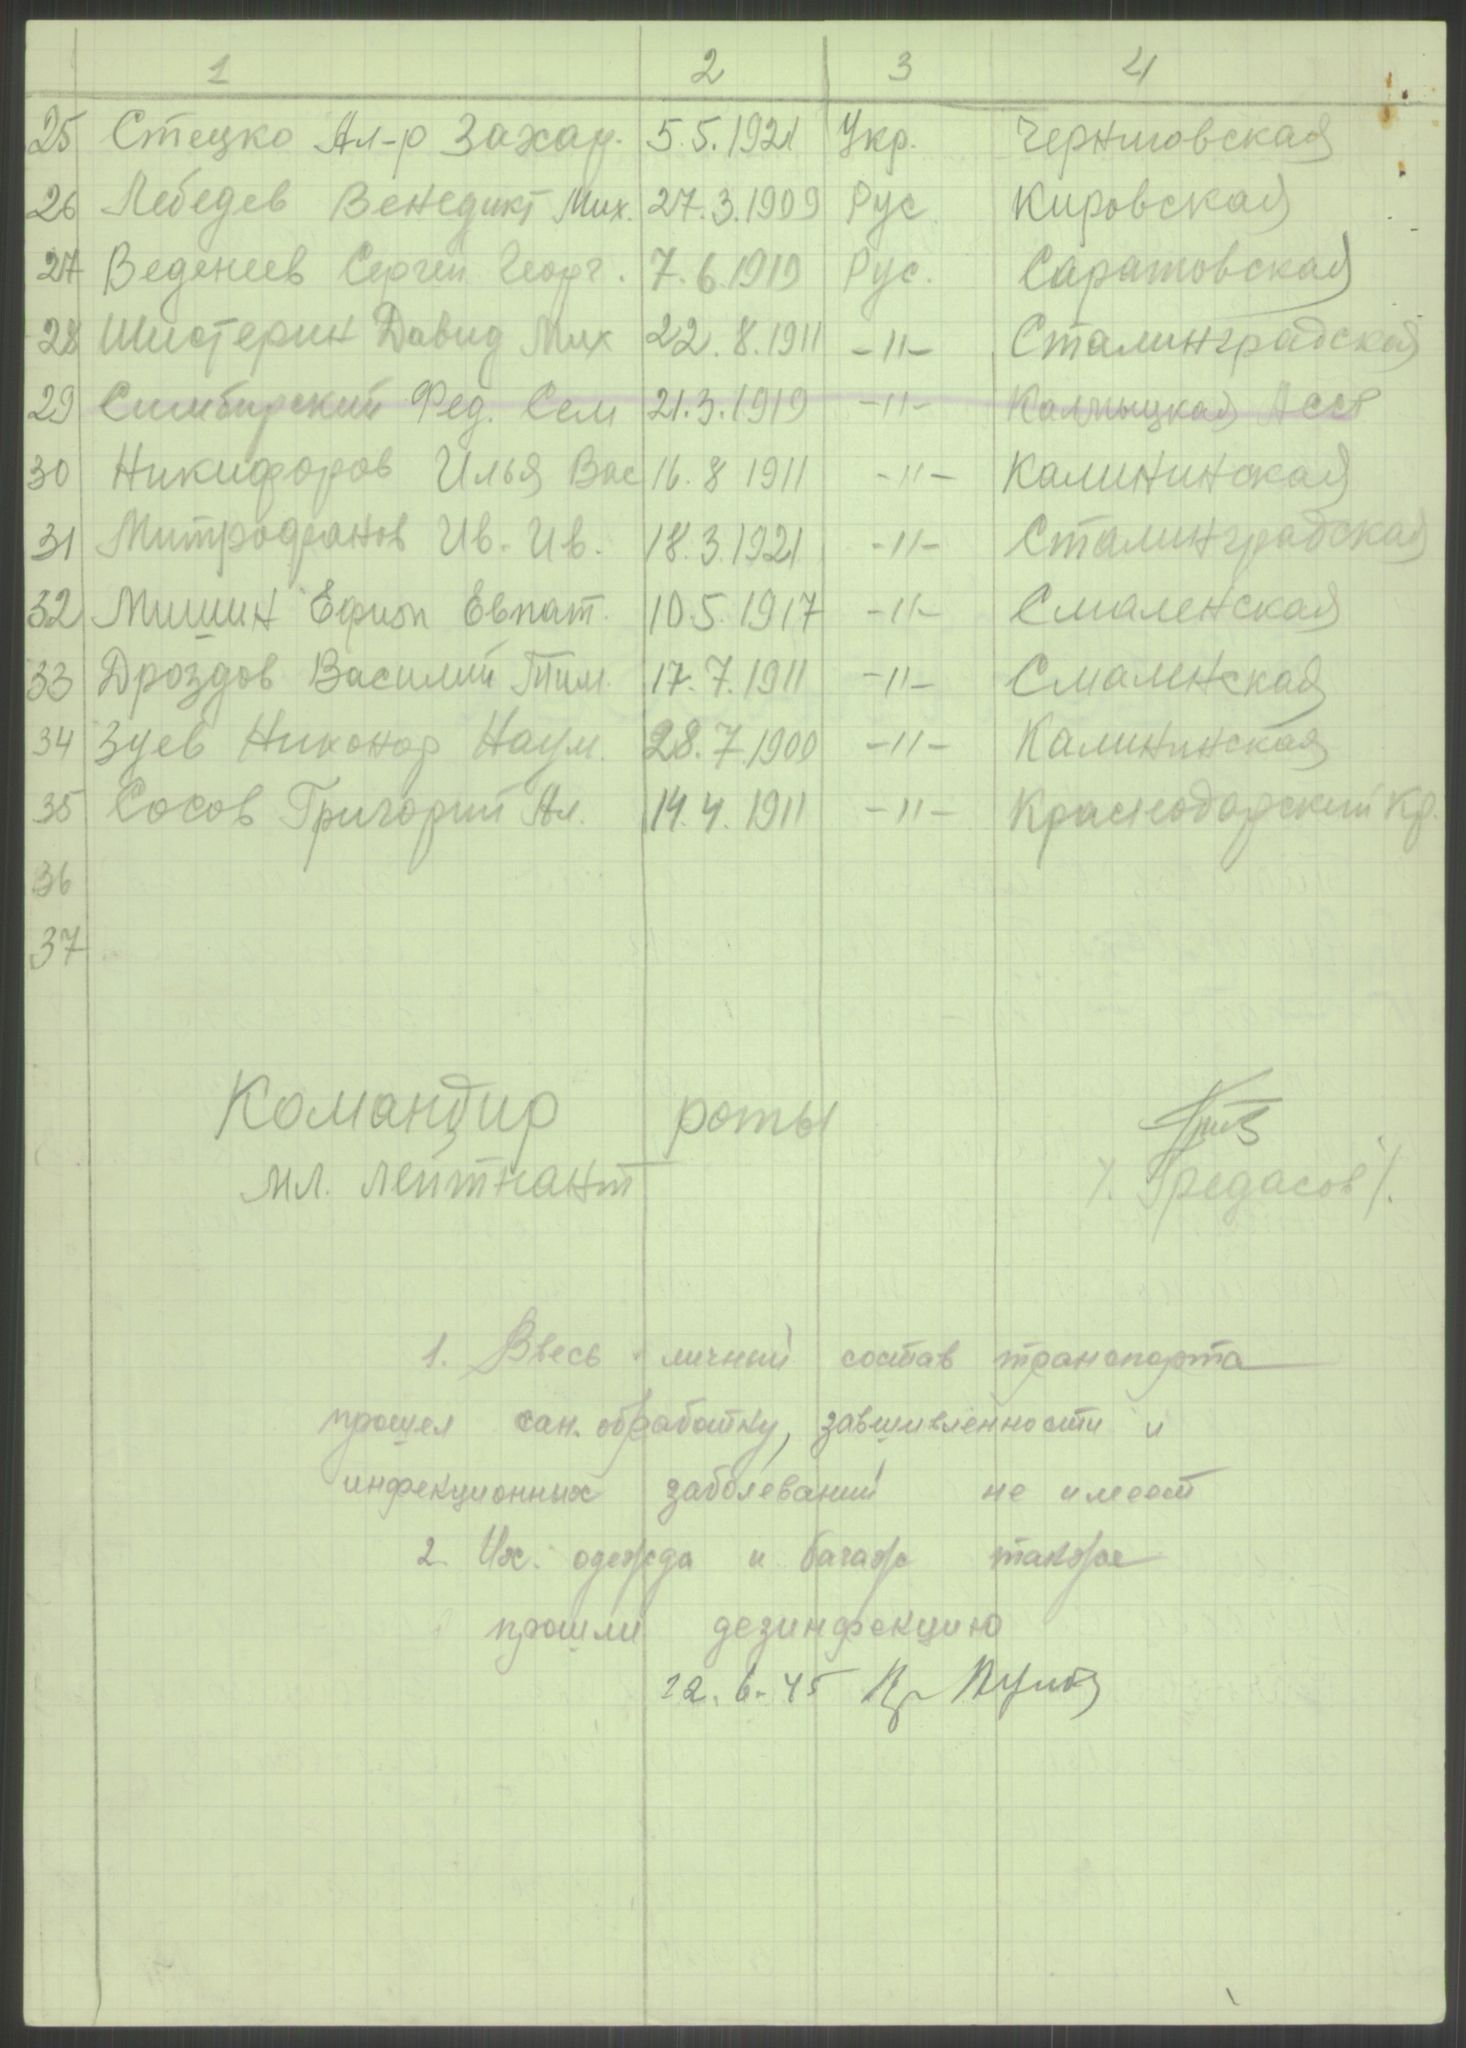 1 2 3 4
25 Стецко Ал-р Захар. 5.5.1921 Укр. Черниговская
26 Лебедев Венедикт Мих. 27.3.1909 Рус. Кировская
27 Веденеев Сергей Георг. 7.6.1919 Рус. Саратовская
28 Шистерин Давид Мих 22.8.1911 -"- Сталинградская
29 Симбирский Фед. Сем 21.3.1919 -"- Калмыцкая Асср
30 Никифоров Илья Вас 16.8 1911 -"- Калининская
31 Митрофанов Ив. Ив. 18.3.1921 -"- Сталинградская
32 Мишин Ефим Евпат. 10.5.1917 -"- Смаленская
33 Дроздов Василий Тим. 17.7.1911 -"- Смаленская
34 Зуев Никонор Наум. 28.7.1900 -"- Калининская
35 Сосов Григорий Ал. 14.4.1911 -"- Краснодарский Кр.
36
37
Командир роты
мл. лейтнант /. Гредасов /.
1. Ввесь личный состав транспорта
прошел сан. обработку, завшивленности и
инфекционных заболеваний не имеет
2. Их. одежда и багаж также
прошли дезинфекцию
22.6.45